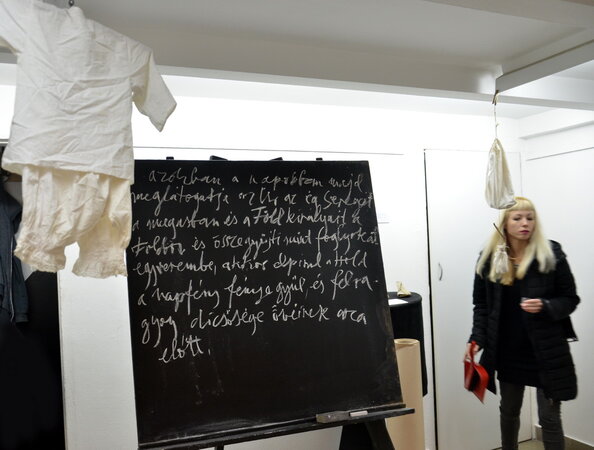 azokban a napokban majd
meglátogatja az Úr az ég Seregét
a magasban és a Föld királyait a
Földön és összegyűjti mint foglyokat
egy verembe, akkor elpirul a Hold
a napfény fenye gyúl, és felra-
gyog dicsősége övéinek arca
előtt.